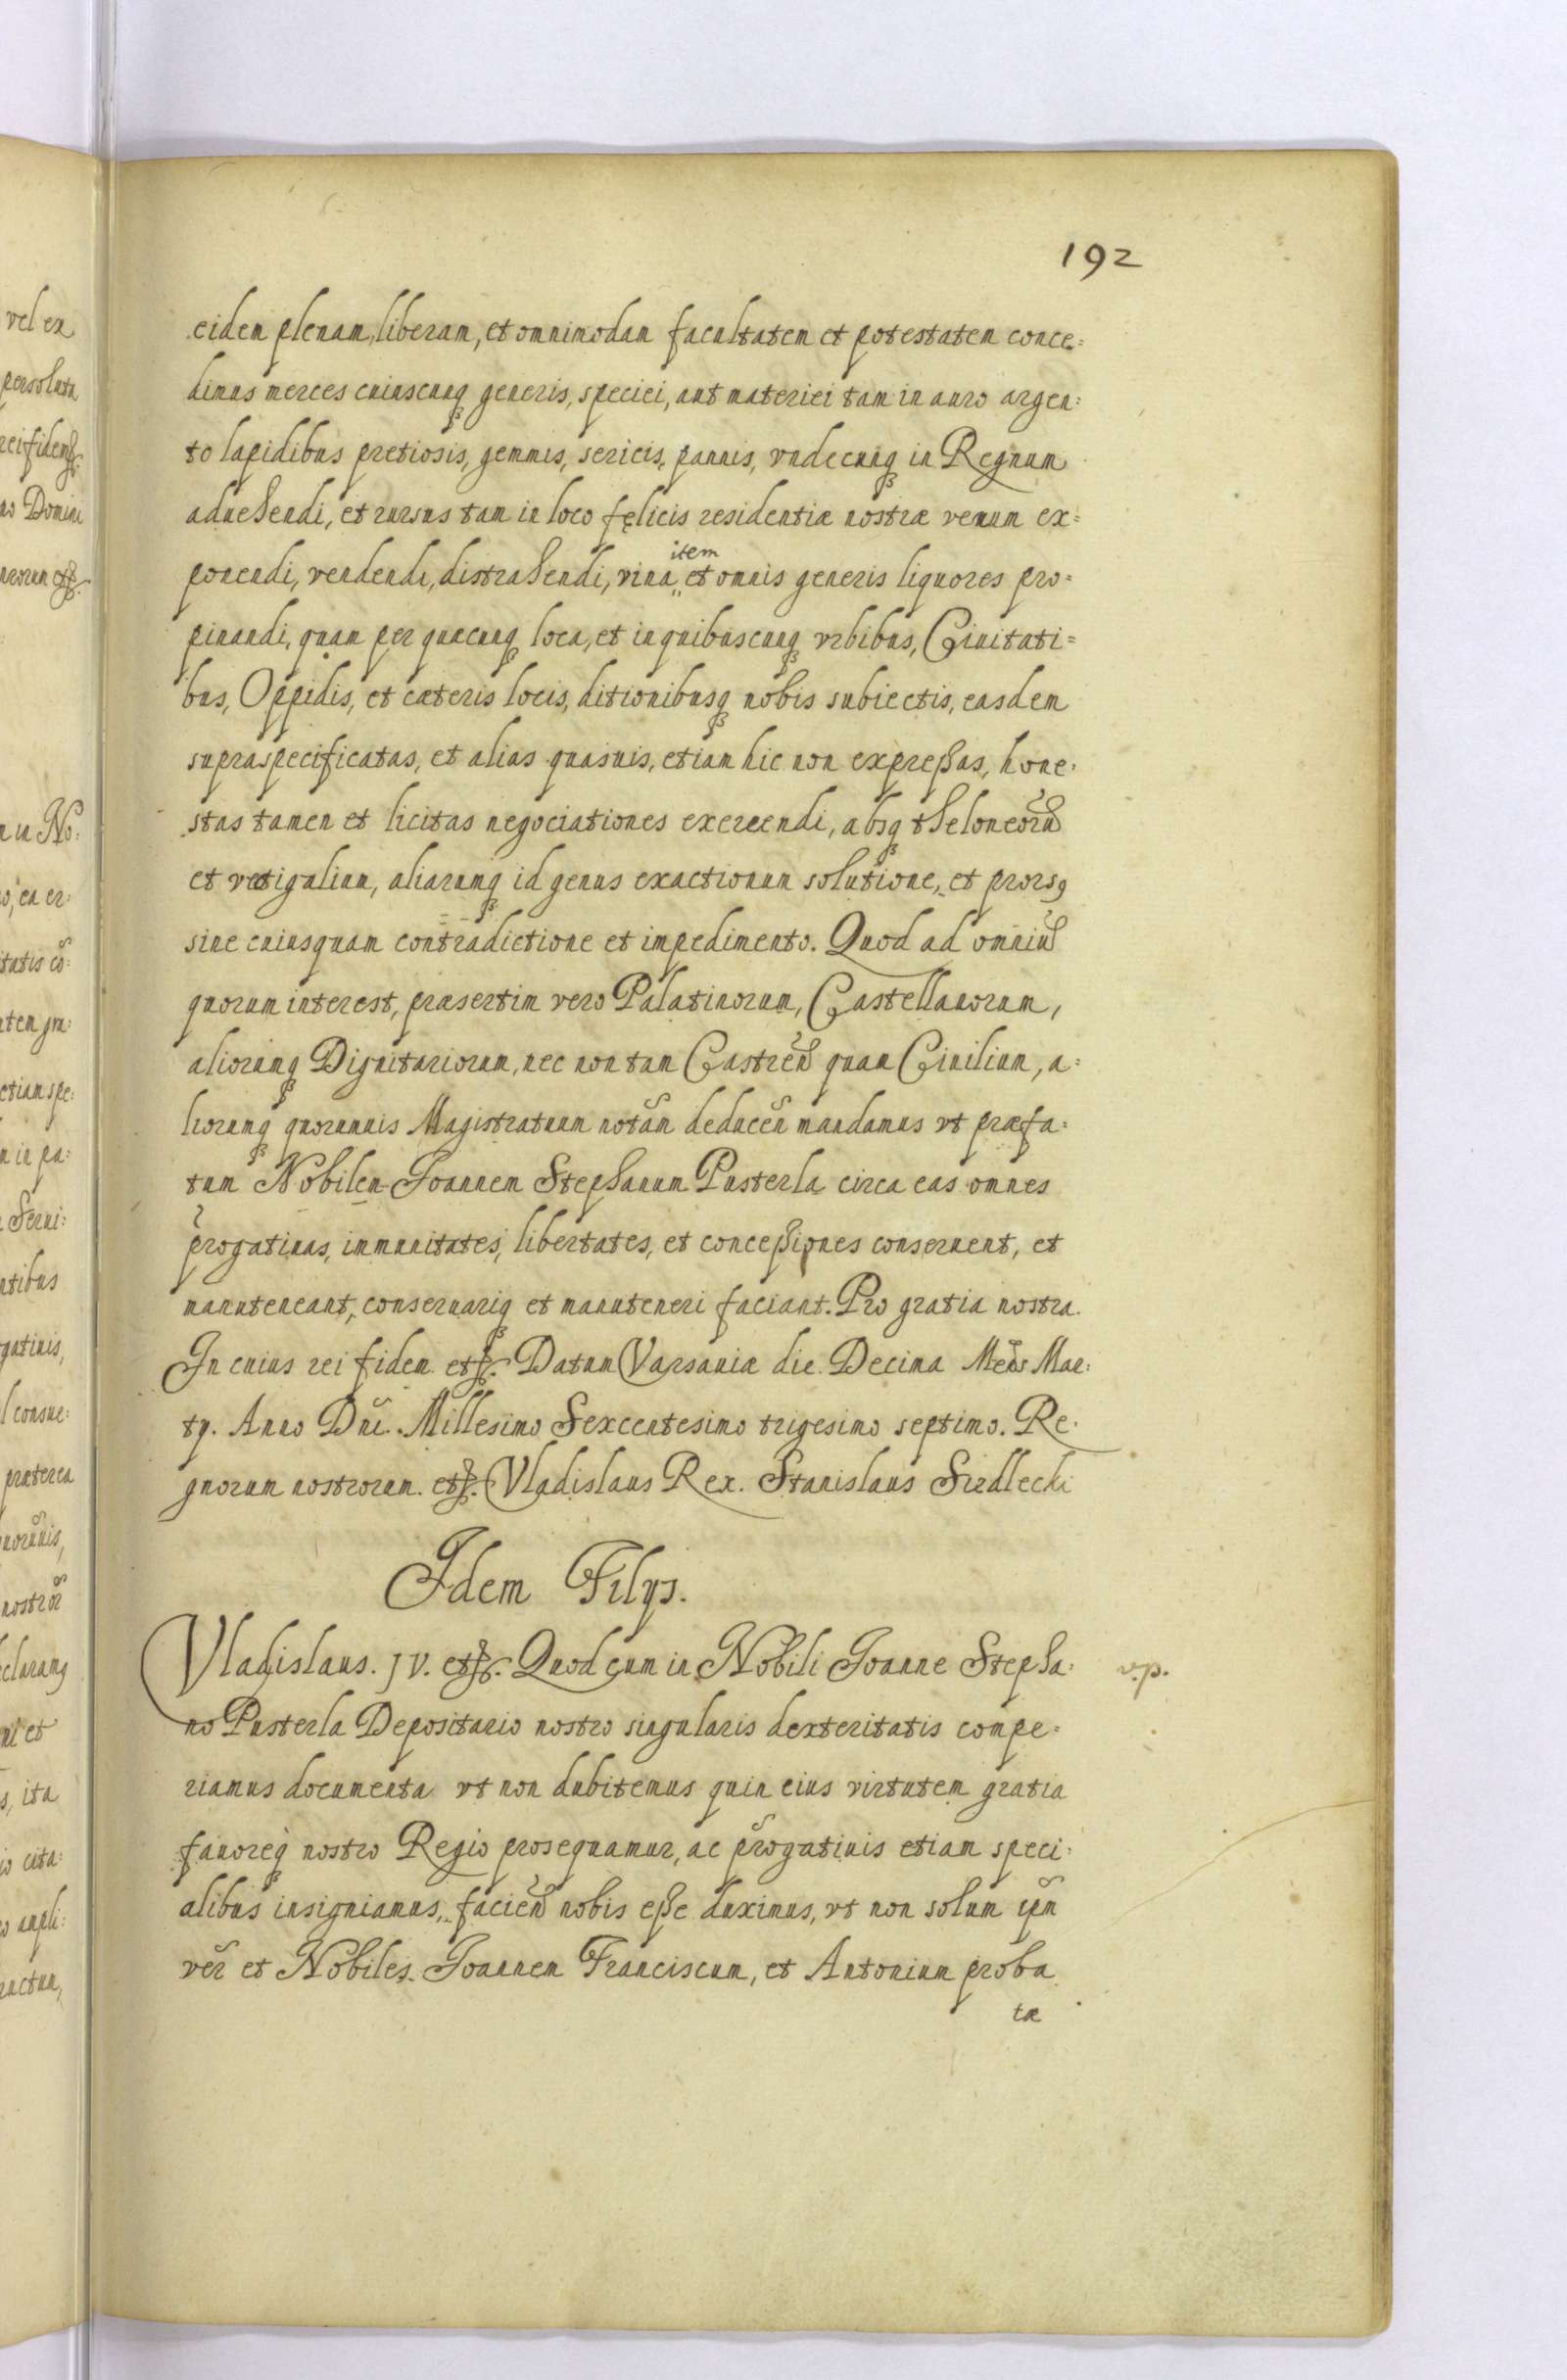 192
eidem plenam, liberam, et omnimodam facultatem et potestatem conce=
dimus merces cuiuscunqꝫ generis, speciei, aut materiei tam in auro argen=
to lapidibus pretiosis, gemmis, sericis, pannis, vndecunqꝫ in Regnum
aduehendi, et rursus tam in loco fęlicis residentiæ nostræ venum ex=
item
ponendi, vendendi, distrahendi, vina et omnis generis liquores pro=
pinandi, quam per quæcunqꝫ loca, et in quibuscunqꝫ vrbibus, Ciuitati=
bus, Oppidis, et cæteris locis, ditionibusqꝫ nobis subiectis, easdem
supraspecificatas, et alias quasuis, etiam hic non expreßas, hone=
stas tamen et licitas negociationes exercendi, absqꝫ theloneorū
et vectigalium, aliarumqꝫ id genus exactionum solutione, et prorsꝰ
sine cuiusquam contradictione et impedimento. Quod ad omniū
quorum interest, præsertim vero Palatinorum, Castellanorum,
aliorumqꝫ Dignitariorum, nec non tam Castreñ quam Ciuilium, a=
liorumqꝫ quorumuis Magistratuum notam̃ deduceñ mandamus vt præfa=
tum Nobilem Joannem Stephanum Pusterla circa eas omnes
p̃rogatiuas, immunitates, libertates, et conceßiones conseruent, et
manuteneant, conseruariqꝫ et manuteneri faciant. Pro gratia nostra.
In cuius rei fidem etꝫ. Datum Varsauiæ die Decima Meñs Mar=
tÿ. Anno Dñi. Millesimo Sexcentesimo trigesimo septimo. Re=
gnorum nostrorum. etꝫ. Vladislaus Rex. Stanislaus Siedlecki
Idem Filÿs.
Vladislaus. IV. etꝫ. Quod cum in Nobili Joanne Stepha=
no Pusterla Depositario nostro singularis dexteritatis compe=
riamus documenta vt non dubitemus quin eius virtutem gratia
fauoreqꝫ nostro Regio prosequamur, ac p̃rogatiuis etiam speci=
alibus insigniamus, facieñ nobis eße duximus, vt non solum ip̃m
ver̃ et Nobiles Joannem Franciscum, et Antonium proba
tæ